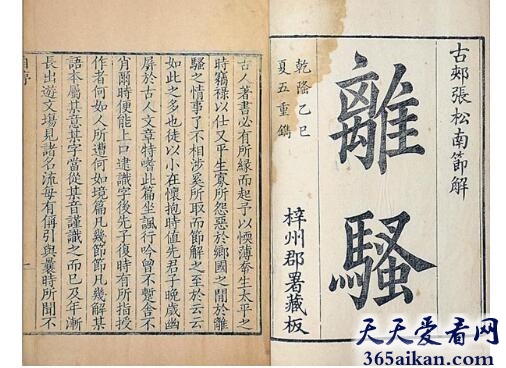 古郟張松南節解
離騷
乾隆乙巳
夏五重鐫
梓州郡署藏板
古人著書必有所緣而起予以愞薄忝生太平之
時竊祿以仕又平生寡所怨惡於鄉國之間於離
騷之情事了不相涉奚所取而節解之至於云云
如此之多也徒以小在懷抱時值先君子晚歲幽
屏於古人文章特嗜此篇坐諷行吟曾不蹔舍不
肖爾時便能上口逮識字後先子復時有所指授
作者何如人所遭何如境篇凡幾節節凡幾解某
語本屬某意某字當從某音謹識之而已及年漸
長出遊文場見諸名流每有偁引與曩時所聞不
天天爱看网
365aikan.com